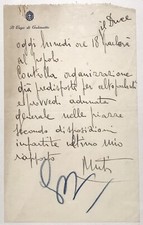 Il Capo di Gabinetto
Il Duce
oggi lunedì ore 18 parlerà
al popolo.
Controlla organizzazione
già predisposta per altoparlanti
e provvedi adunata
generale nelle piazze
secondo disposizioni
impartite ultimo mio
rapporto
Muti